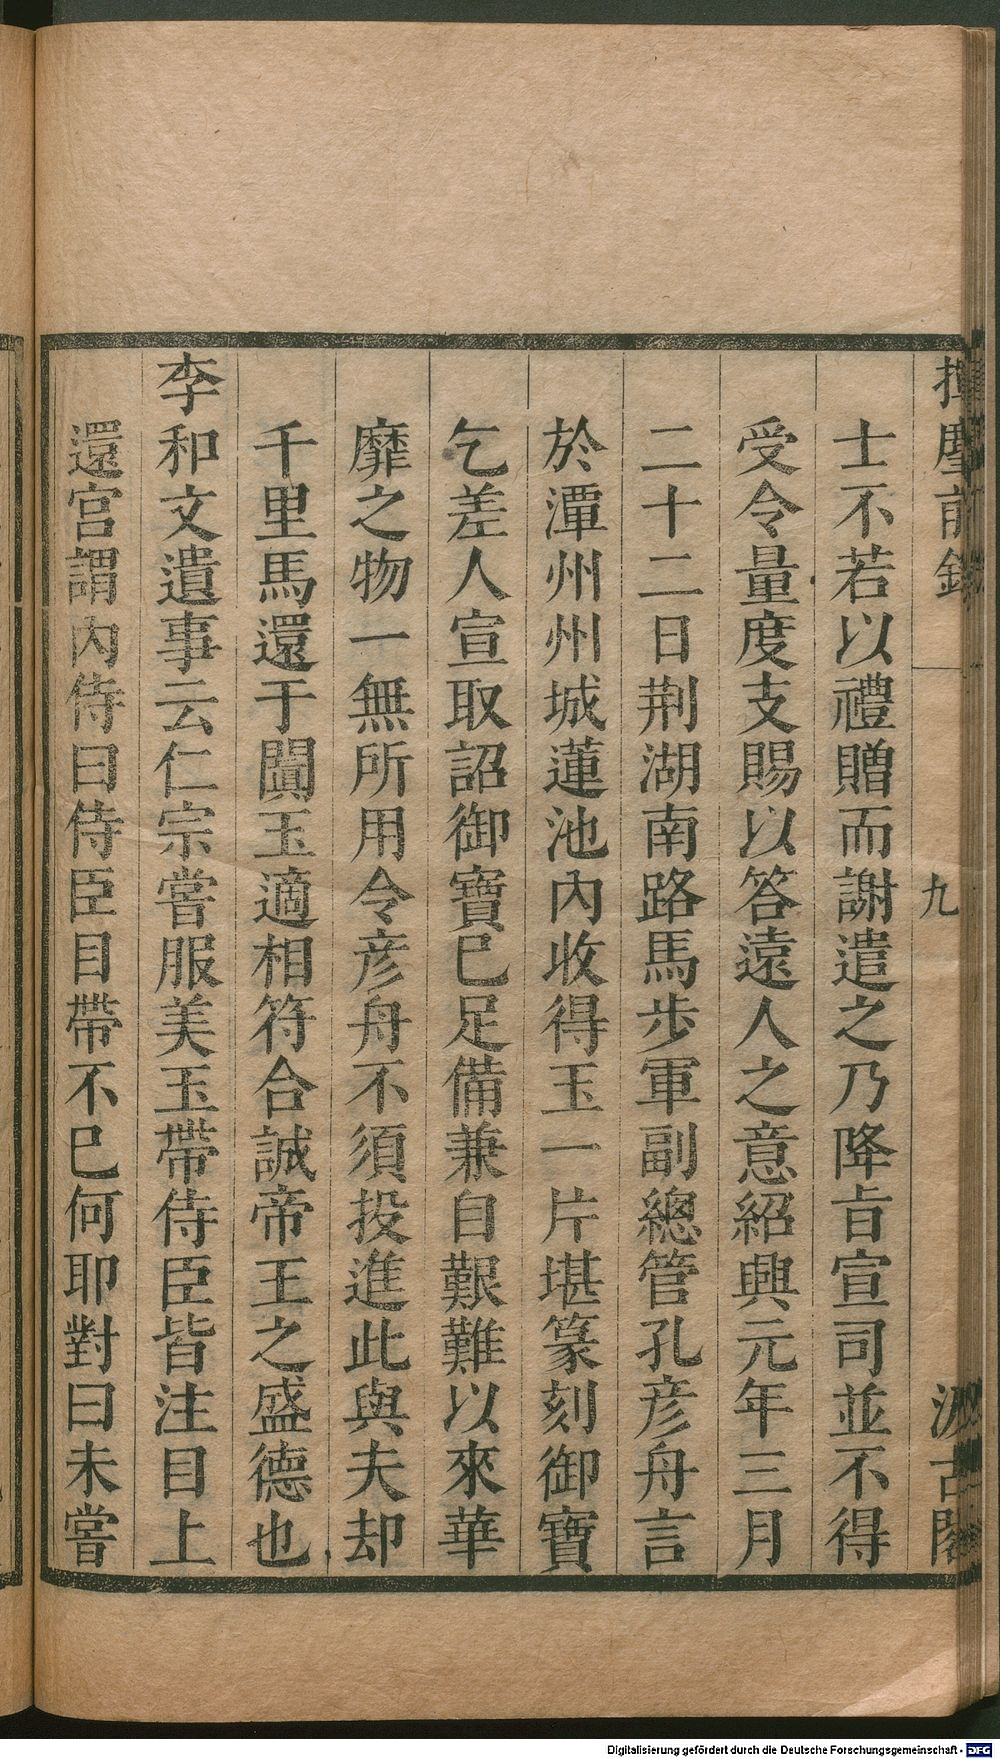 揮麈前錄 九 汲古閣
士不若以禮贈而謝遣之乃降旨宣司並不得
受令量度支賜以答遠人之意紹興元年三月
二十二日荆湖南路馬步軍副總管孔彥舟言
於潭州州城蓮池內收得玉一片堪篆刻御寶
乞差人宣取詔御寶已足備兼自艱難以來華
靡之物一無所用令彥舟不須投進此與夫却
千里馬還于闐玉適相符合誠帝王之盛德也
李和文遺事云仁宗嘗服美玉帶侍臣皆注目上
還宮謂內侍曰侍臣目帶不已何耶對曰未嘗
Digitalisierung gefördert durch die Deutsche Forschungsgemeinschaft - DFG